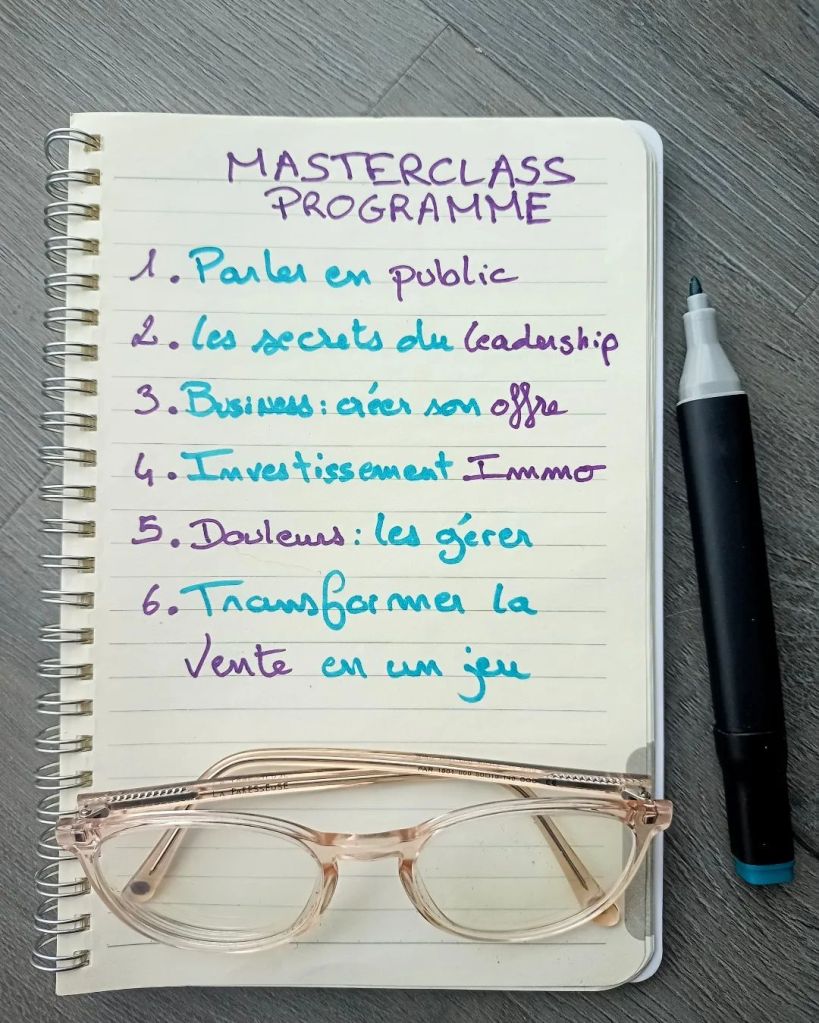 MASTERCLASS
PROGRAMME
1. Parler en public
2. les secrets du leadership
3. Business : créer son offre
4. Investissement Immo
5. Douleurs : les gérer
6. Transformer la
vente en un jeu
LA PARESSEUSE